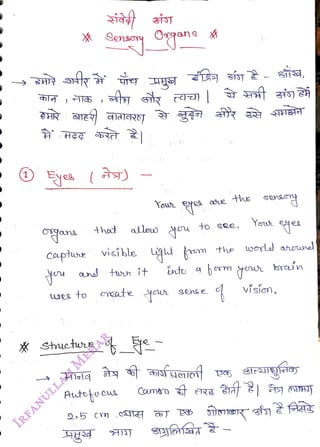 संवेदी अंग
* Sensory Organs *
→ हमारे शरीर में पाँच प्रमुख इंद्रिय अंग है - आँख,
कान, नाक, जीभ और त्वचा। ये सभी अंग हमें
हमारे बाहरी वातावरण से जुड़ने और उसे समझने
में मदद करते है।
① Eyes (नेत्र) -
Your eyes are the sensory
organs that allow you to see. Your eyes
capture visible light from the world around
you and turn it into a form your brain
uses to create your sense of vision.
* Structure of Eye -
→ मानव नेत्र की कार्यप्रणाली एक अत्याधुनिक
Autofocus Camera की तरह होती है। नेत्र लगभग
2.5 cm व्यास का एक गोलाकार अंग है जिसके
प्रमुख भाग अग्रलिखित है -
IRFANULLAH MENAR